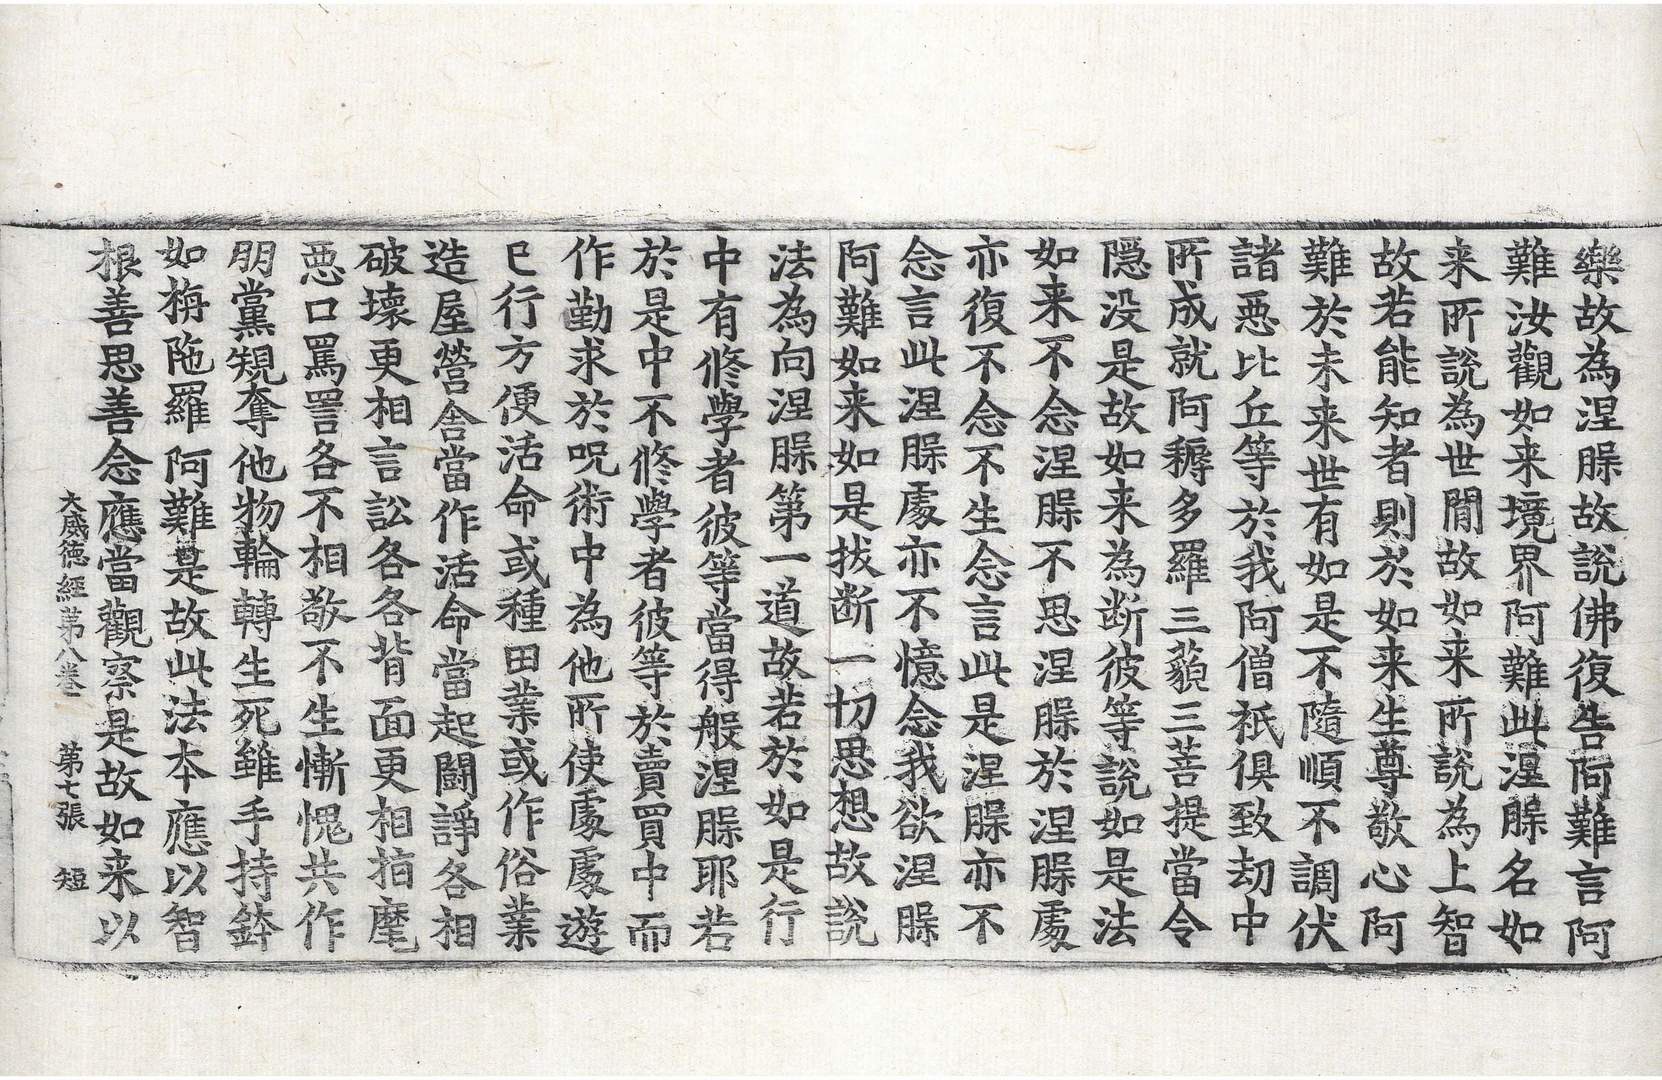 樂故為涅𣵀故說佛復告阿難言阿
難汝觀如来境界阿難此涅𣵀名如
来所說為世間故如来所說為上智
故若能知者則於如来生尊敬心阿
難於未来世有如是不隨順不調伏
諸惡比丘等於我阿僧祇俱致劫中
所成就阿耨多羅三藐三菩提當令
隱没是故如来為断彼等說如是法
如来不念涅𣵀不思涅𣵀於涅𣵀處
亦復不念不生念言此是涅𣵀亦不
念言此涅𣵀處亦不憶念我欲涅𣵀
阿難如来如是拔断一切思想故說
法為向涅𣵀第一道故若於如是行
中有修學者彼等當得般涅𣵀耶若
於是中不修學者彼等於賣買中而
作勤求於呪術中為他所使處處遊
已行方便活命或種田業或作俗業
造屋營舍當作活命當起鬪諍各相
破壞更相言訟各各背面更相指麾
惡口罵詈各不相敬不生慚愧共作
朋黨規奪他物輪轉生死雖手持鉢
如栴陁羅阿難是故此法本應以智
根善思善念應當觀察是故如来以
大威徳經第八卷 第七張 短